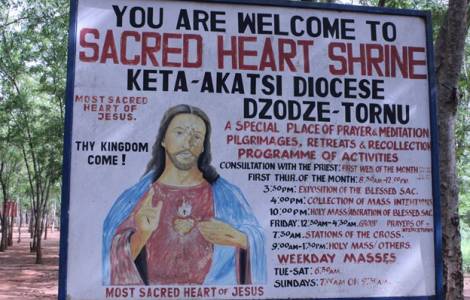 YOU ARE WELCOME TO
SACRED HEART SHRINE
KETA-AKATSI DIOCESE
DZODZE-TORNU
MOST SACRED
HEART OF
JESUS.
THY KINGDOM
COME !
A SPECIAL PLACE OF PRAYER & MEDITATION
PILGRIMAGES, RETREATS & RECOLLECTION
PROGRAMME OF ACTIVITIES
CONSULTATION WITH THE PRIEST: FIRST WED. OF THE MONTH
FIRST THUR. OF THE MONTH: 8:30AM-12:00PM
3:30PM: EXPOSITION OF THE BLESSED SAC.
4:00PM: COLLECTION OF MASS INTENTIONS
10:00PM: HOLY MASS/ADORATION OF BLESSED SAC.
FRIDAY: 12:30AM-4:30AM. GROUP PRAYERS OF
7:30AM. STATIONS OF THE CROSS.
9:00AM-1:30PM: HOLY MASS/OTHERS.
WEEKDAY MASSES
TUE-SAT: 6:30AM.
SUNDAYS: 7:00AM OR 9:30AM.
MOST SACRED HEART OF JESUS